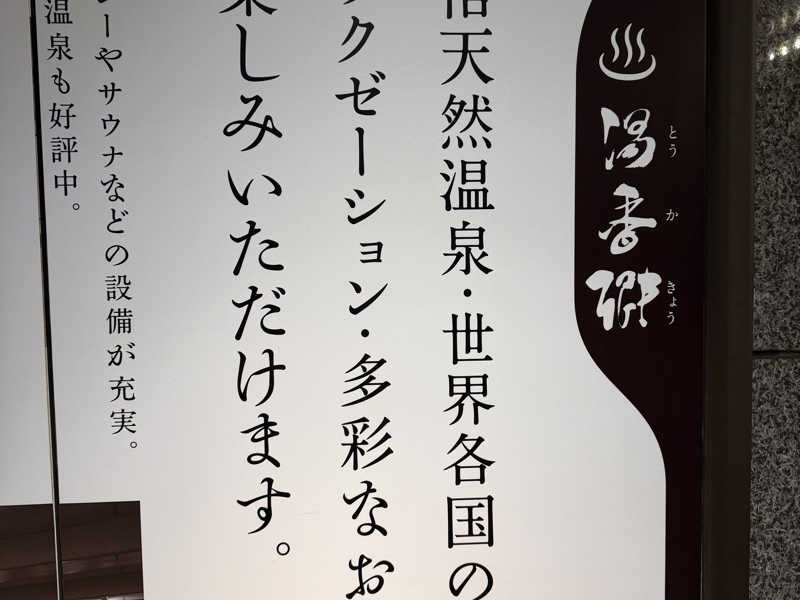 湯香郷
とうかきょう
天然温泉・世界各国の
クゼーション・多彩なお
しみいただけます。
ーやサウナなどの設備が充実。
温泉も好評中。